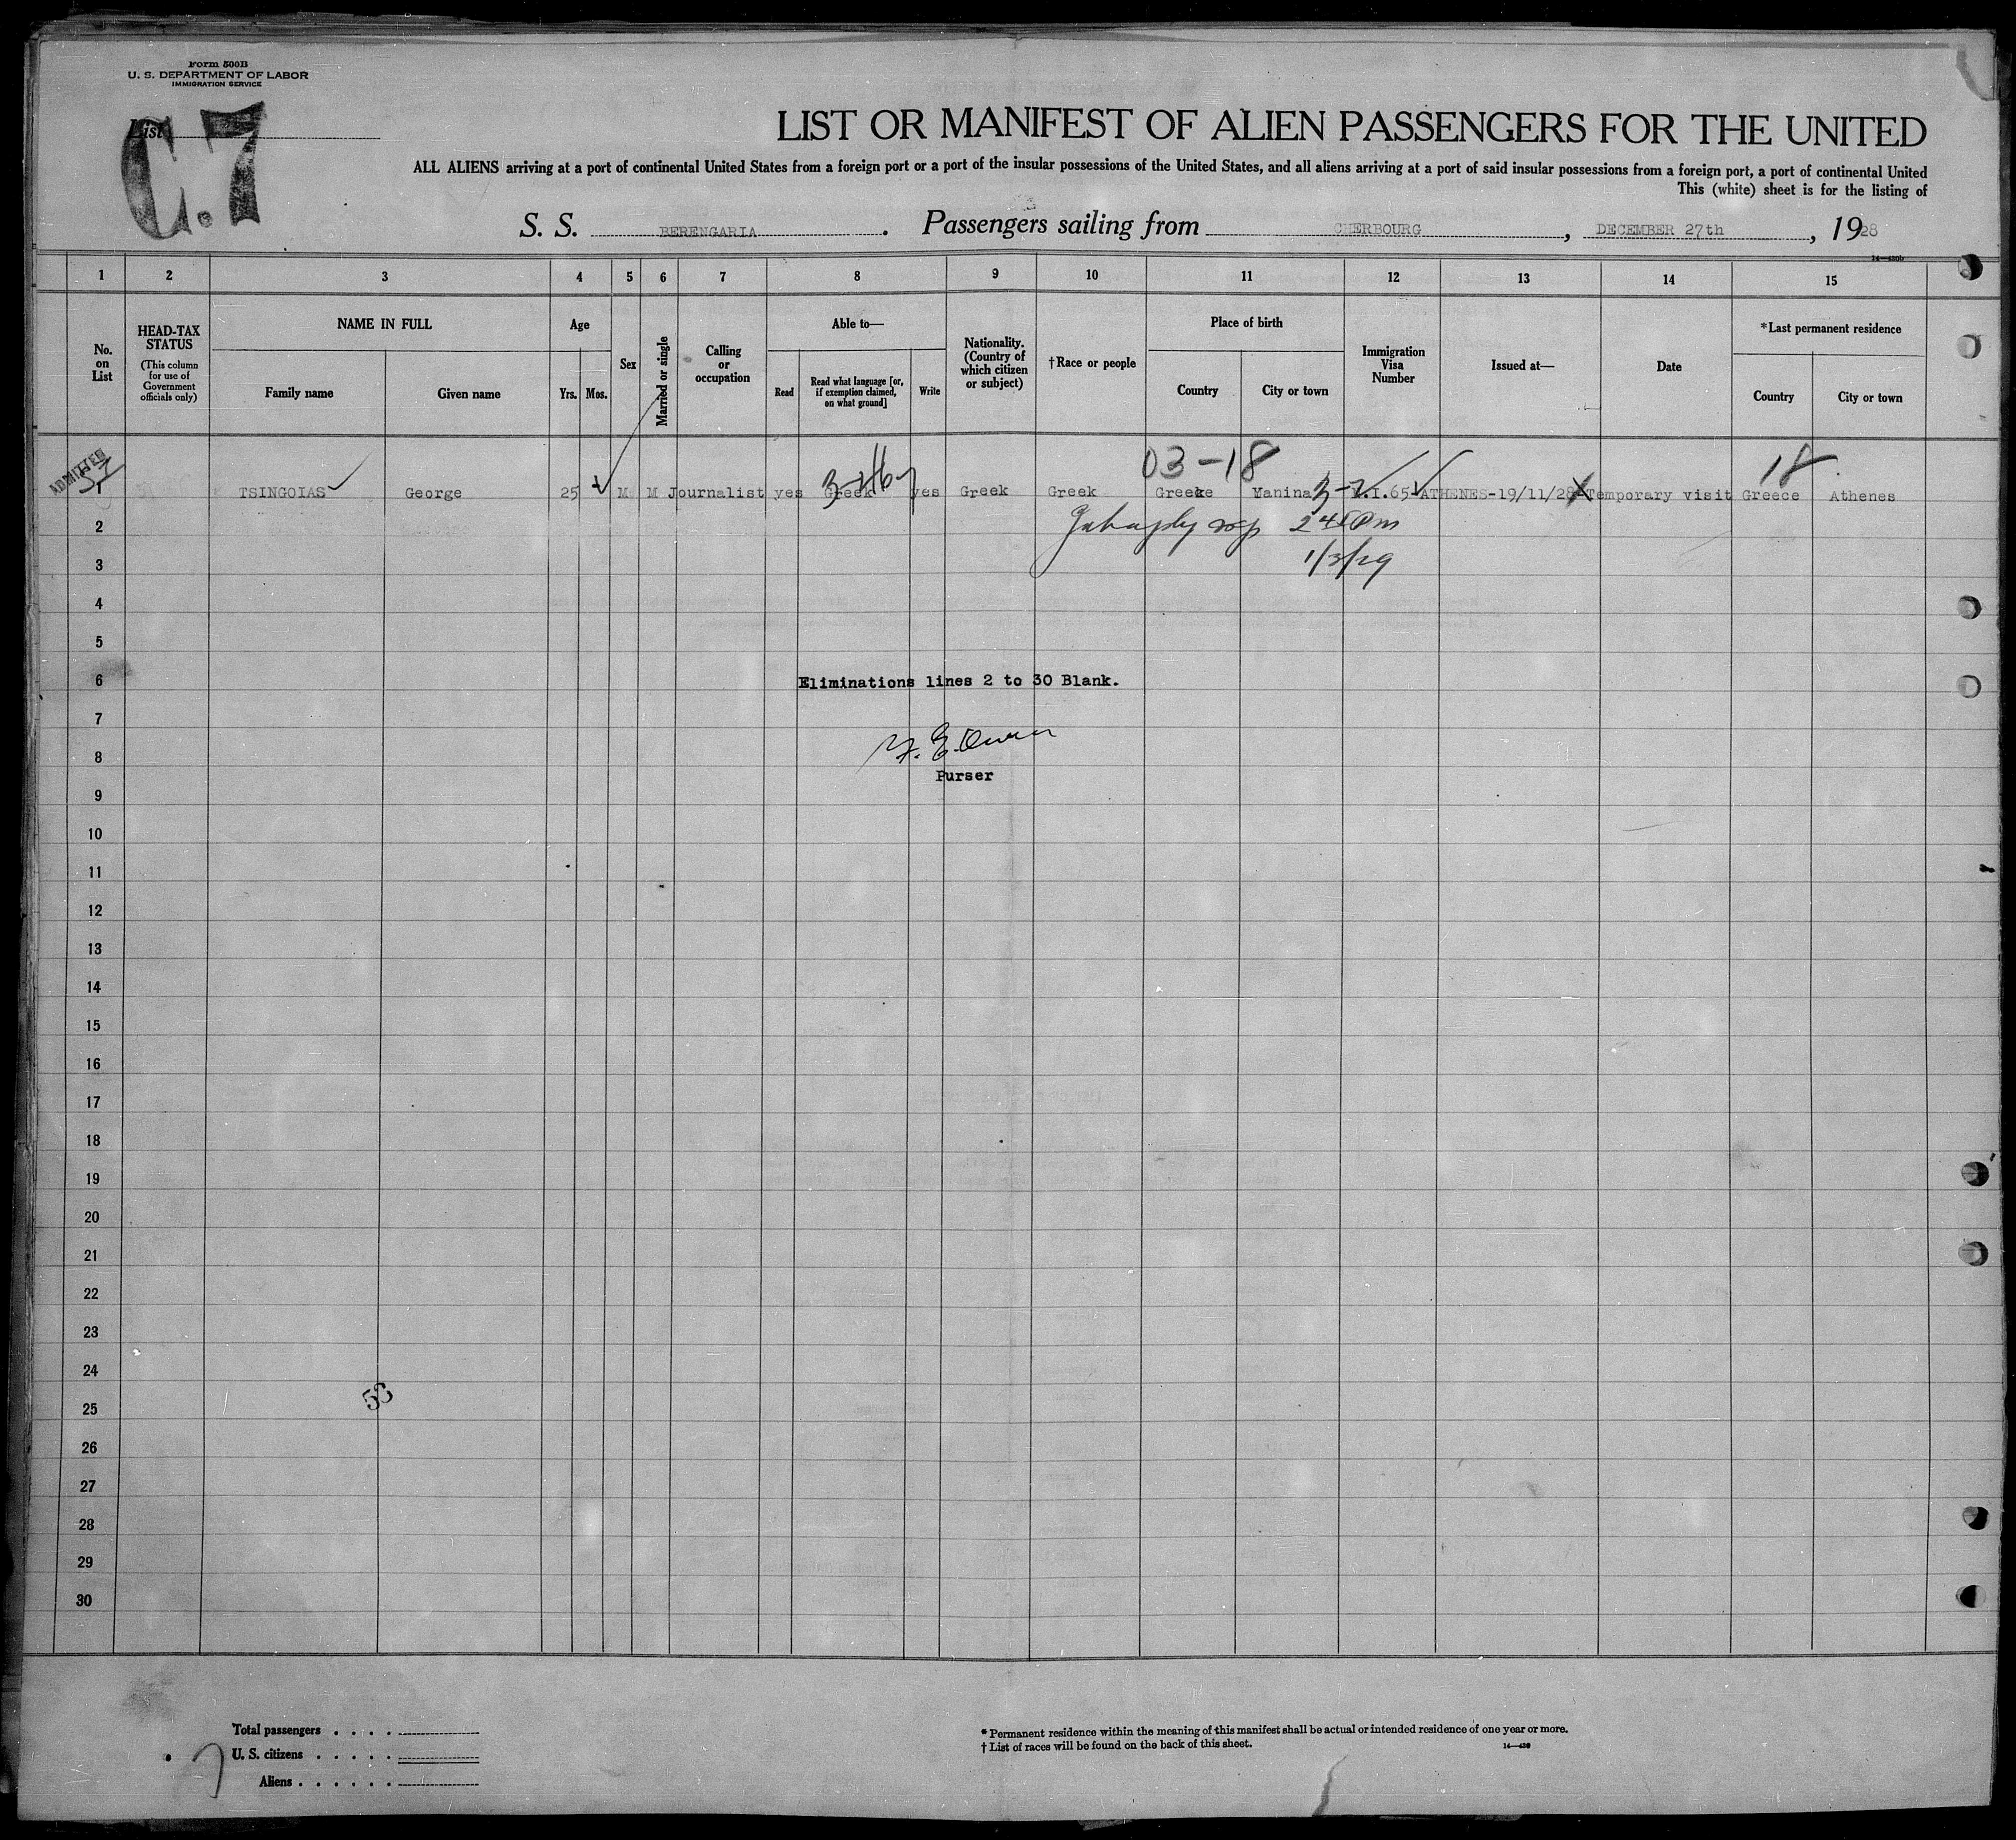 Form 500B
U. S. DEPARTMENT OF LABOR
IMMIGRATION SERVICE
List
C.7
LIST OR MANIFEST OF ALIEN PASSENGERS FOR THE UNITED
ALL ALIENS arriving at a port of continental United States from a foreign port or a port of the insular possessions of the United States, and all aliens arriving at a port of said insular possessions from a foreign port, a port of continental United
This (white) sheet is for the listing of
S. S. BERENGARIA. Passengers sailing from CHERBOURG, DECEMBER 27th, 1928
1 2 3 4 5 6 7 8 9 10 11 12 13 14 15
No. on List
HEAD-TAX STATUS
(This column for use of Government officials only)
NAME IN FULL
Family name Given name
Age
Yrs. Mos.
Sex
Married or single
Calling or occupation
Able to—
Read Read what language [or, if exemption claimed, on what ground] Write
Nationality. (Country of which citizen or subject)
†Race or people
Place of birth
Country City or town
Immigration Visa Number
Issued at—
Date
*Last permanent residence
Country City or town
ADMITTED
03-18 18
1 TSINGOIAS George 25 M M Journalist yes Greek yes Greek Greek Greeke Manina 65 ATHENES-19/11/28 Temporary visit Greece Athenes
2 2 45 Pm
3 1/3/29
4
5
6 Eliminations lines 2 to 30 Blank.
7
8
Purser
9
10
11
12
13
14
15
16
17
18
19
20
21
22
23
24
25
26
27
28
29
30
Total passengers . . . .
U. S. citizens . . . . .
Aliens . . . . . .
* Permanent residence within the meaning of this manifest shall be actual or intended residence of one year or more.
† List of races will be found on the back of this sheet.